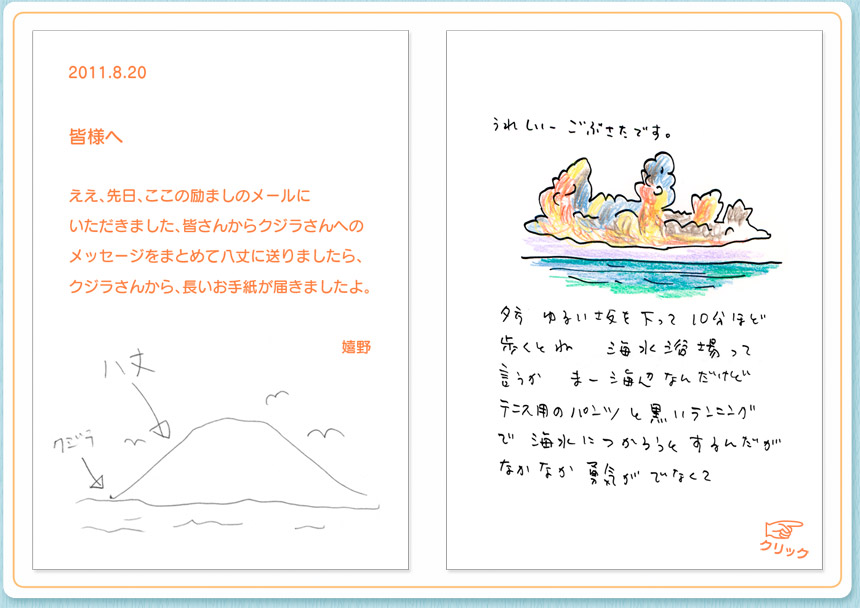 2011.8.20
皆様へ
ええ、先日、ここの励ましのメールに
いただきました、皆さんからクジラさんへの
メッセージをまとめて八丈に送りましたら、
クジラさんから、長いお手紙が届きましたよ。
嬉野
八丈
クジラ
うれしいー ごぶさたです。
夕方 ゆるい坂を下って 10分ほど
歩くとね 海水浴場って
言うか まー 海辺なんだけど
テニス用のパンツと黒いランニング
で 海水につかろうとするんだが
なかなか 勇気が でなくて
クリック